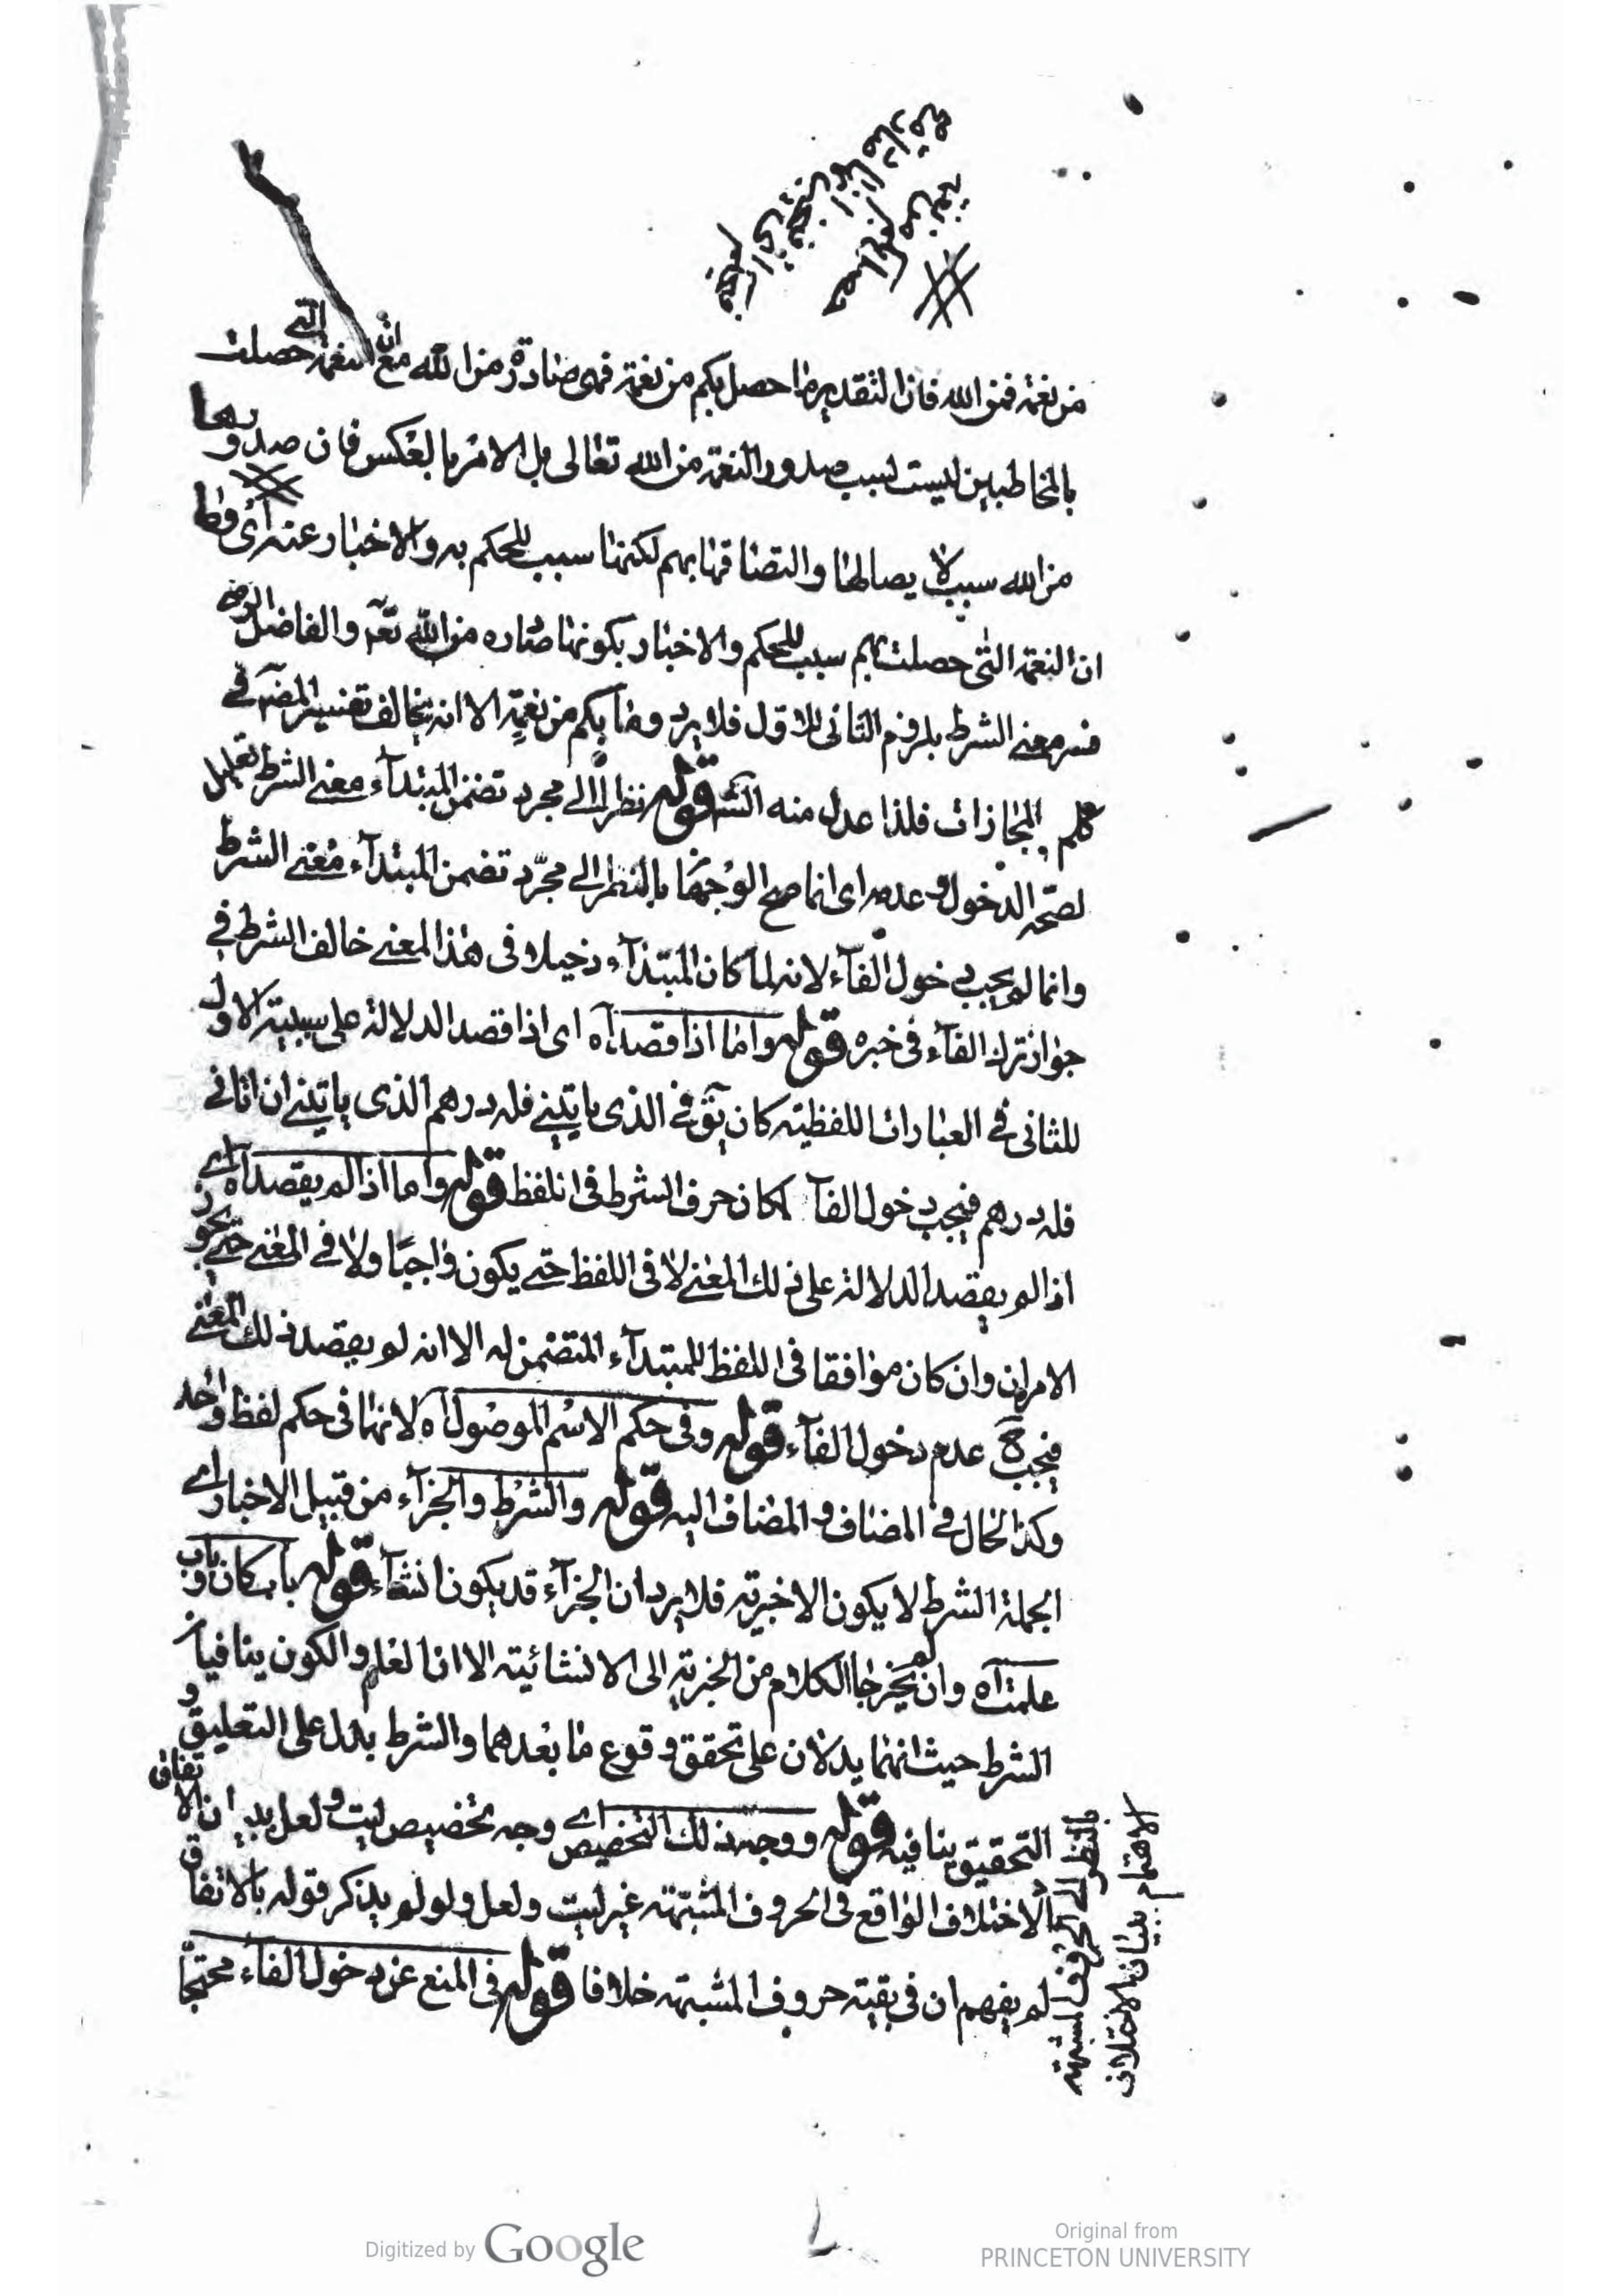 من نعمة فمن الله فان التقدير ما حصل بكم من نعمة فهى صادرة من الله مع ان النعمة التى حصلت
بالمخاطبين ليست لسبب صدور النعمة من الله تعالى بل الامر بالعكس فان صدورها
من الله سبب لا يصالها والتصاقها بهم لكنها سبب للحكم به والاخبار عنه اى
ان النعمة التى حصلت بهم سبب للحكم والاخبار بكونها صادره من الله تعـ والفاضل الرضى
فسر معنى الشرط بلزوم الثانى للاول فلا يرد وما بكم من نعمة الا انه يخالف تفسير المصـ فى
كلم المجازات فلذا عدل منه الشـ قوله نظرا الى مجرد تضمن المبتدآء معنى الشرط تعليل
لصحة الدخول وعدمه اى انما صح الوجهان بالنظر الى مجرّد تضمن المبتدآء معنى الشرط
وانما لم يجب دخول الفآء لانه لما كان المبتدآء دخيلا فى هذا المعنى خالف الشرط فى
جواز ترك الفآء فى خبره قوله واما اذا قصد آه اى اذا قصد الدلالة على سببية الاول
للثانى فى العبارات اللفظية كان يقـ فى الذى ياتينى فله درهم الذى ياتينى ان اتانى
فله درهم فيجب دخول الفآ لمكان حرف الشرط فى اللفظ قوله واما اذا لم يقصد آه اى
اذا لم يقصد الدلالة على ذلك المعنى لا فى اللفظ حتى يكون واجبا ولا فى المعنى حتى يجوز
الامران وان كان موافقا فى اللفظ للمبتدآء المتضمن له الا انه لم يقصد ذلك المعنى
فيجب ح عدم دخول الفآء قوله وفى حكم الاسم الموصول آه لانهما فى حكم لفظ واحد
وكذا الحال فى المضاف والمضاف اليه قوله والشرط والجزآء من قبيل الاخبار اى
الجملة الشرط لا يكون الا خبرية فلا يرد ان الجزآء قد يكون انشآء قوله باب كان وباب
علمت آه وان لم يخرجا الكلام من الخبرية الى الانشائية الا ان العلم والكون ينافيان
الشرط حيث انهما يدلان على تحقق وقوع ما بعدهما والشرط يدل على التعليق و
التحقيق ينافيه قوله ووجه ذلك التخصيص اى وجه تخصيص ليت ولعل ببيان الاتفاق
الاختلاف الواقع فى الحروف المشبّهة غير ليت ولعل ولو لم يذكر قوله بالاتفاق
لم يفهم ان فى بقية حروف المشبهة خلافا قوله فى المنع عن دخول الفآء محتجّا
بالنظر الى الحروف المشبهة
الاهتمام ببيان الاختلاف
Digitized by Google
Original from
PRINCETON UNIVERSITY